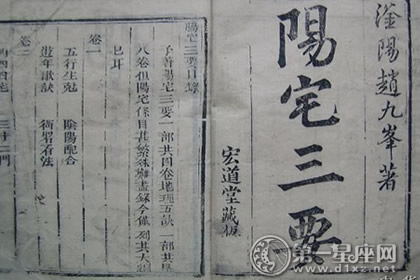 滏陽趙九峯著
陽宅三要
宏道堂藏板
陽宅三要目錄
予著陽宅三要一部共四卷地理五訣一部共
八卷但陽宅條目甚繁難盡錄今條列其大
已耳
卷一
五行生剋 陰陽配合
遊年歌訣 衙署看法
卷二
三十二門
第一星座网
www.d1xz.net